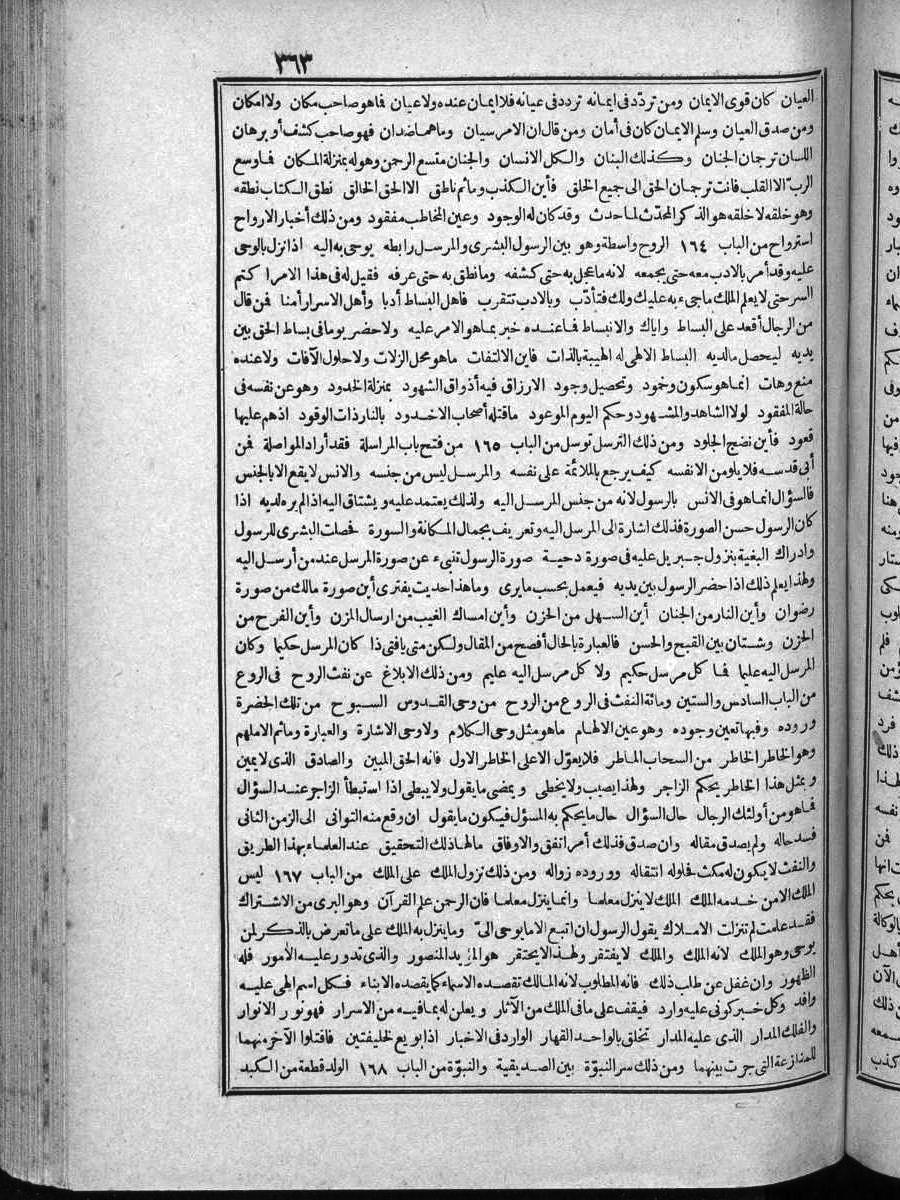 ٣٦٣
العيان كان قوى الايمان ومن تردّد فى ايمانه تردد فى عيانه فلا ايمان عنده ولا عيان فما هو صاحب مكان ولا امكان
ومن صدق العيان وسلم الايمان كان فى أمان ومن قال ان الامر سيان وما هما ضدان فهو صاحب كشف أو برهان
اللسان ترجمان الجنان وكذلك البنان والكل الانسان والجنان متسع الرحمن وهو له بمنزلة المكان فما وسع
الربّ الا القلب فانت ترجمان الحق الى جميع الخلق فأين الكذب وما ثم ناطق الا الحق الخالق نطق الكتاب نطقه
وهو خلقه لا خلقه هو الذكر المحدّث لما حدث وقد كان له الوجود وعين المخاطب مفقود ومن ذلك أخبار الارواح
استرواح من الباب ١٦٤ الروح واسطة وهو بين الرسول البشرى والمرسل رابطه يوحى به اليه اذا نزل بالوحى
عليه وقد أمر بالادب معه حتى يجمعه لانه ما عجل به حتى كشفه وما نطق به حتى عرفه فقيل له فى هذا الامر اكتم
السر حتى لا يعلم الملك ما جىء به عليك ولك فتأدّب وبالادب تتقرب فاهل البساط أدبا وأهل الاسرار أمنا فمن قال
من الرجال أقعد على البساط واياك والانبساط فما عنده خبر بما هو الامر عليه ولا حضر يوما فى بساط الحق بين
يديه ليحصل ما لديه البساط الالهى له الهيبة بالذات فاين الالتفات ما هو محل الزلات ولا حلول الآفات ولا عنده
منع وهات انما هو سكون وخمود وتحصيل وجود الارزاق فيه أذواق الشهود بمنزلة الخدود وهو عن نفسه فى
حالة المفقود لولا الشاهد والمشهود وحكم اليوم الموعود ما قتله أصحاب الاخدود بالنار ذات الوقود اذ هم عليها
قعود فأين نضج الجلود ومن ذلك الترسل توسل من الباب ١٦٥ من فتح باب المراسلة فقد أراد المواصلة فمن
أبى قدسه فلا يلومن الا نفسه كيف يرجع بالملائمة على نفسه والمرسل ليس من جنسه والانس لا يقع الا بالجنس
فالسؤال انما هو فى الانس بالرسول لانه من جنس المرسل اليه ولذلك يعتمد عليه ويشتاق اليه اذا لم يره لديه اذا
كان الرسول حسن الصورة فذلك اشارة الى المرسل اليه وتعريف بجمال المكانة والسورة فحصلت البشرى للرسول
وادراك البغية بنزول جبريل عليه فى صورة دحية صورة الرسول تنبىء عن صورة المرسل عند من أرسل اليه
ولهذا يعلم ذلك اذا حضر الرسول بين يديه فيعمل بحسب ما يرى وما هذا حديث يفترى أين صورة مالك من صورة
رضوان وأين النار من الجنان أين السهل من الحزن وأين امساك الغيب من ارسال المزن وأين الفرح من
الحزن وشتان بين القبح والحسن فالعبارة بالحال أفصح من المقال ولكن متى يا فتى ذا كان المرسل حكيما وكان
المرسل اليه عليما فما كل مرسل حكيم ولا كل مرسل اليه عليم ومن ذلك الابلاغ عن نفث الروح فى الروع
من الباب السادس والستين ومائة النفث فى الروع من الروح من وحى القدوس السبوح من تلك الحضرة
وروده وفيها تعين وجوده وهو عين الالهام ما هو مثل وحى الكلام ولا وحى الاشارة والعبارة وما ثم الا ملهم
وهو الخاطر الخاطر من السحاب الماطر فلا يعوّل الا على الخاطر الاول فانه الحق المبين والصادق الذى لا يمين
وبمثل هذا الخاطر يحكم الزاجر ولهذا يصيب ولا يخطى ويمضى ما يقول ولا يبطى اذا استبطأ الزاجر عند السؤال
فما هو من أولئك الرجال حال السؤال حال ما يحكم به المسؤل فيكون ما يقول ان وقع منه التوانى الى الزمن الثانى
فسد حاله ولم يصدق مقاله وان صدق فذلك أمر اتفق والاوفاق ما لها ذلك التحقيق عند العلماء بهذا الطريق
والنفث لا يكون له مكث فحلوله انتقاله ووروده زواله ومن ذلك نزول الملك على الملك من الباب ١٦٧ ليس
الملك الا من خدمه الملك الملك لا ينزل معلما وانما ينزل معلما فان الرحمن علم القرآن وهو البرى من الاشتراك
فقد علمت لم تنزلت الاملاك يقول الرسول ان اتبع الا ما يوحى الىّ وما ينزل به الملك على ما تعرض بالذكر لمن
يوحى وهو الملك لانه الملك والملك لا يفتقر ولهذا لا يحتقر هو المؤيد المنصور والذى تدور عليه الأمور فله
الظهور وان غفل عن طلب ذلك فانه المطلوب لانه المالك تقصده الاسماء كما يقصده الابناء فكل اسم الهى عليه
وافد وكل خبر كونى عليه وارد فيقف على ما فى الملك من الآثار ويعلن له بما فيه من الاسرار فهو نور الانوار
والفلك المدار الذى عليه المدار تخلق بالواحد القهار الوارد فى الاخبار اذا بويع لخليفتين فاقتلوا الآخر منهما
للمنازعة التى جرت بينهما ومن ذلك سر النبوّة بين الصديقية والنبوّة من الباب ١٦٨ الولد قطعة من الكبد